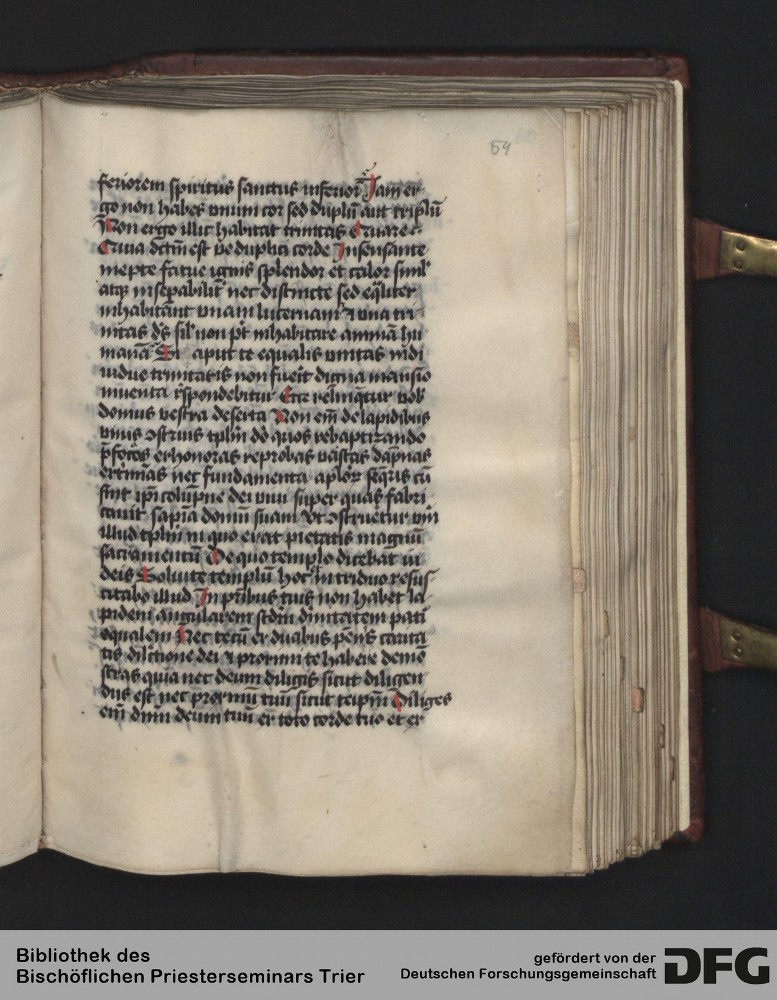 59
feriorem spiritus sanctus inferior Jam er
go non habes unum cor sed duplū aut triplū
Non ergo illic habitat trinitas Quare
Quia dictm est ve duplici corde Insensate
inepte fatue ignis splendor et calor siml'
atqꝫ insepabilit' nec distincte sed eq̄liter
inhabitant unam lucernam et una tri
nitas ds sil' non pt inhabitare animā hu
manā Si aput te equalis unitas indi
uidue trinitatis non fuerit digna mansio
inuenta rspondebitur Ecce relinquetur vob'
domus vestra deserta Non em̄ de lapidibus
unius ꝯstruis tplm̄ dō quos rebaptizando
erhonoras reprobas uastas dāpnas
nec fundamenta aplor seqris cū
sint ipi colūpne dei uiui super quas fabri
cauit sapīa domū suam
illud tplm̄ in quo erat pietatis magnū
sacramentū De quo templo dicebat iu
deis Soluite templū hoc in triduo resus
citabo illud In ptibus tuis non habet la
pidem angularem scdm diuitatem patri
equalem Nec tecū ex duabus caritā
tis dilectione dei et proximi te habere demō
stras quia nec deum diligis sicut diligen
dus est nec proximū tuū sicut teipm̄ Diliges
em̄ dnm̄ deum tuū ex toto corde tuo et ex
Bibliothek des
Bischöflichen Priesterseminars Trier
gefördert von der
Deutschen Forschungsgemeinschaft
DFG